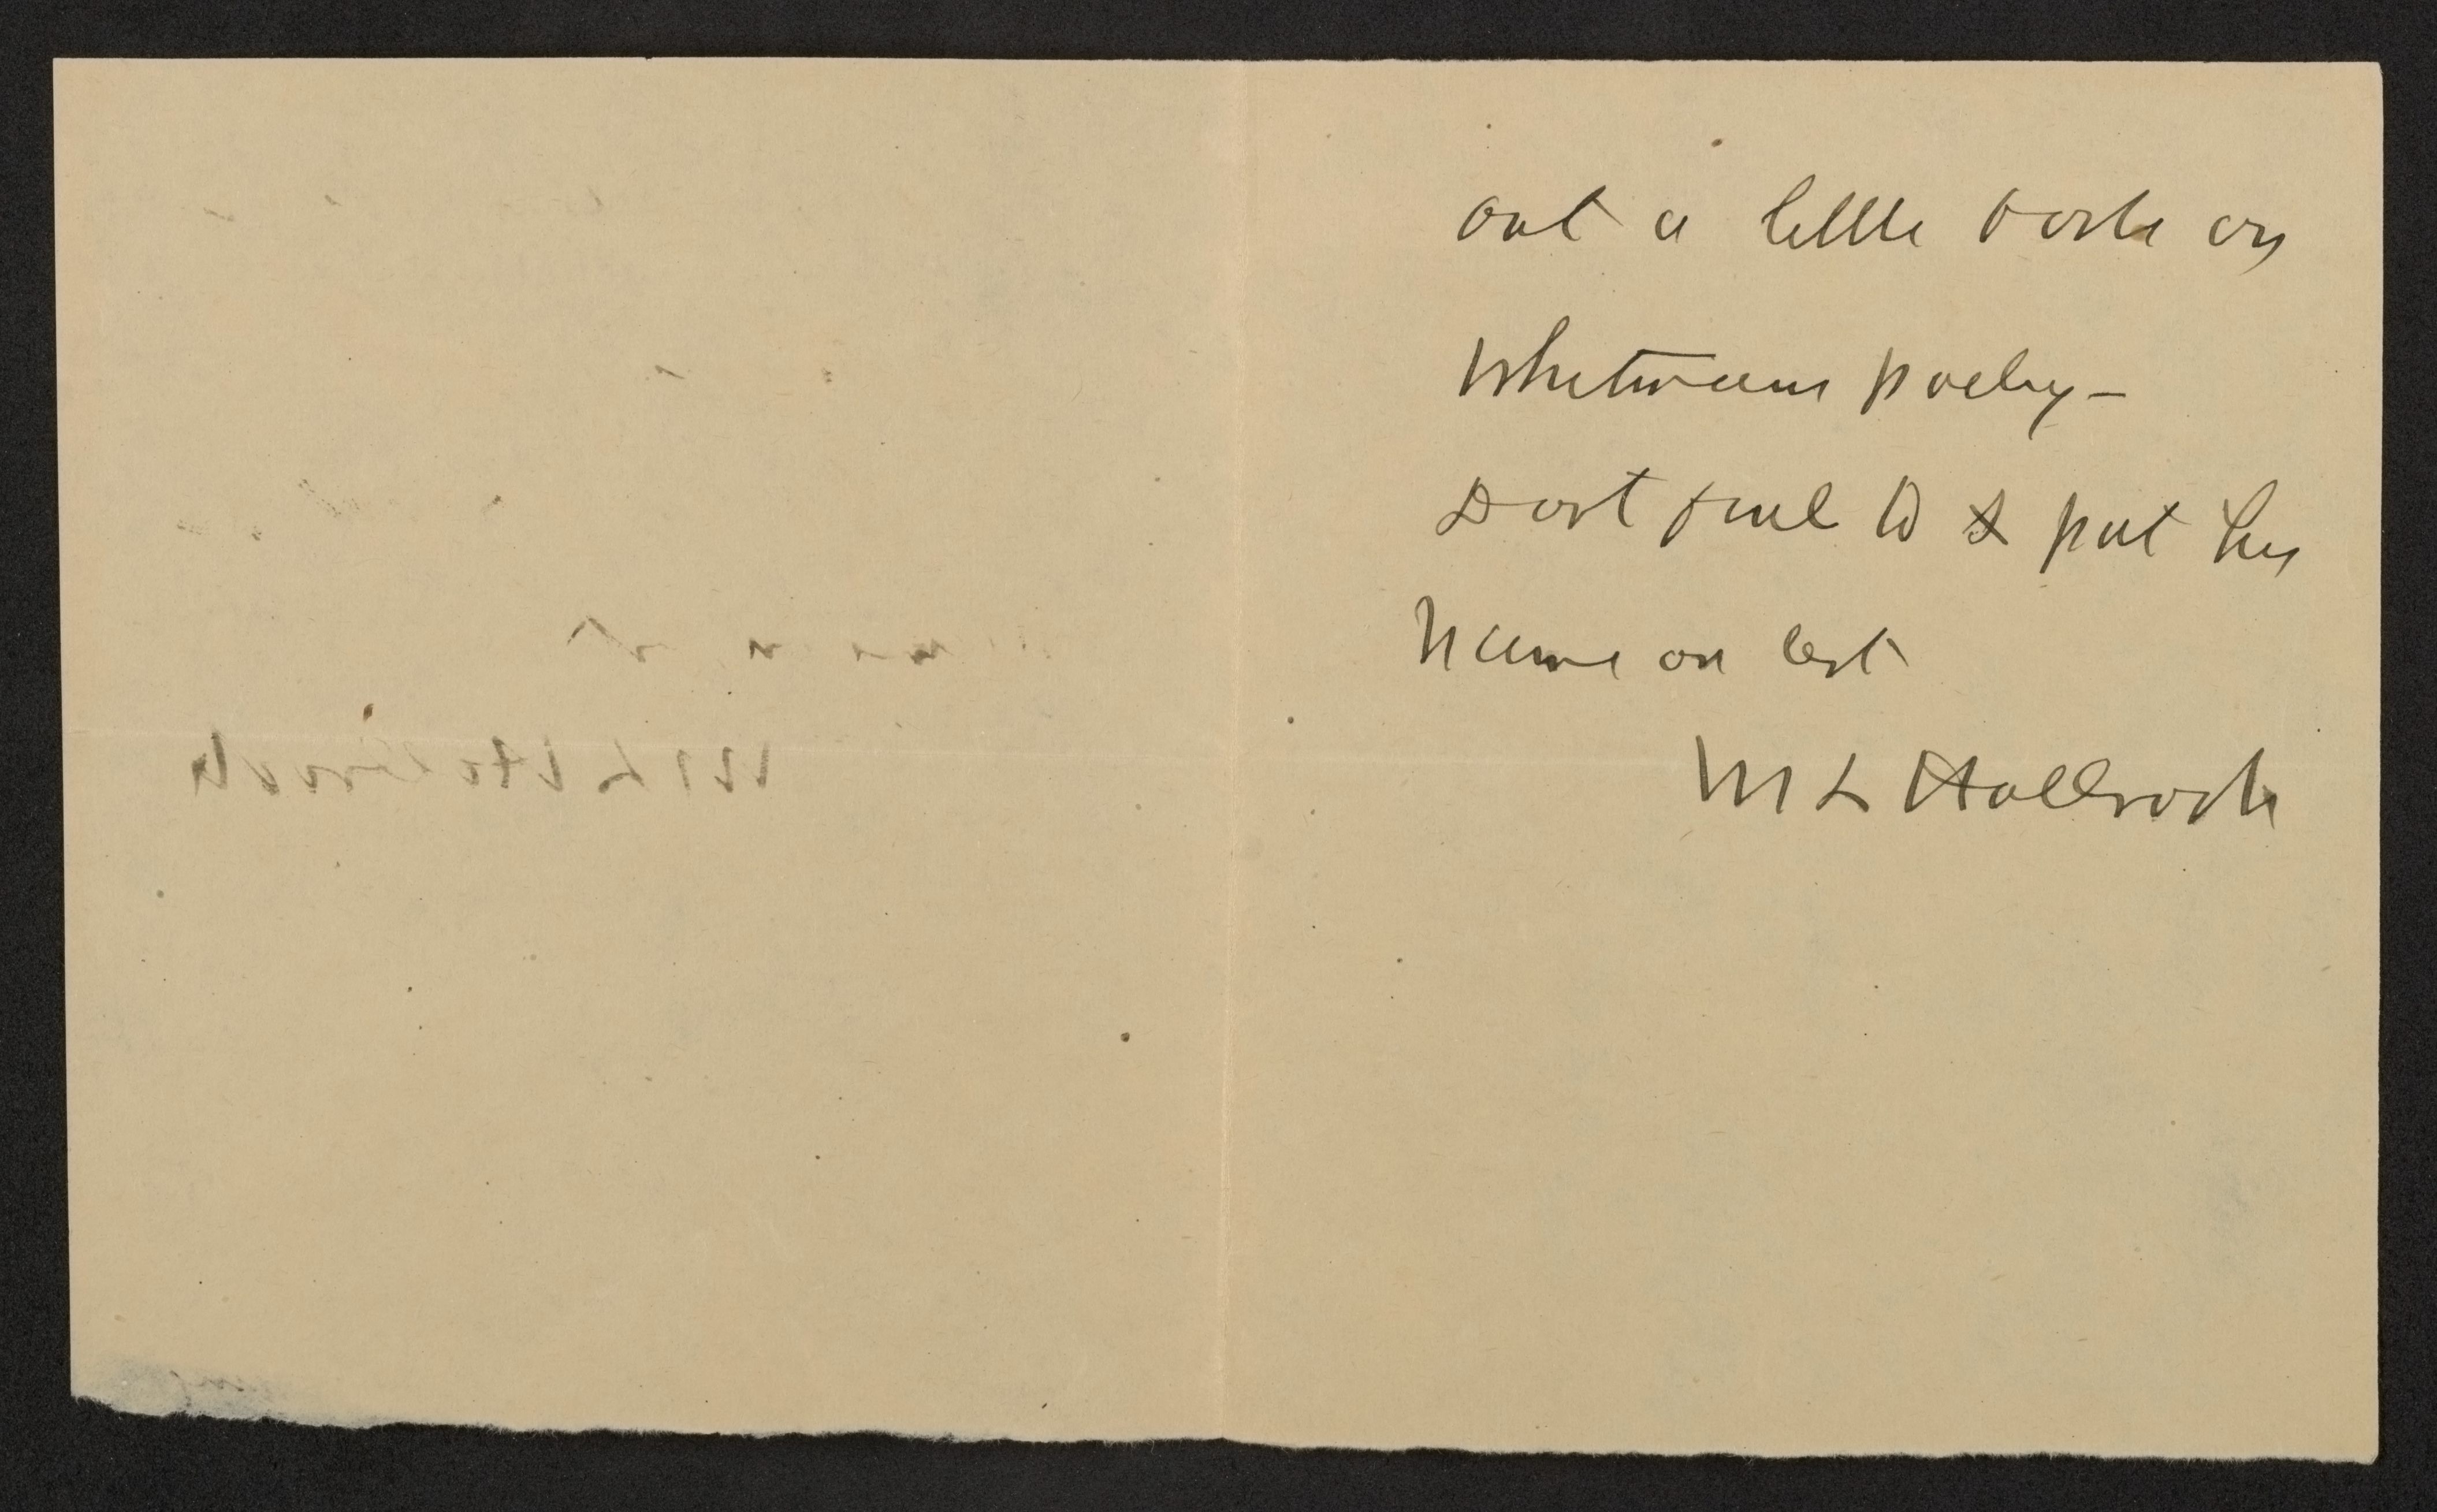 out a little book on
Whitmans poetry —
Dont fail to put his
name on list
M L Holbrook